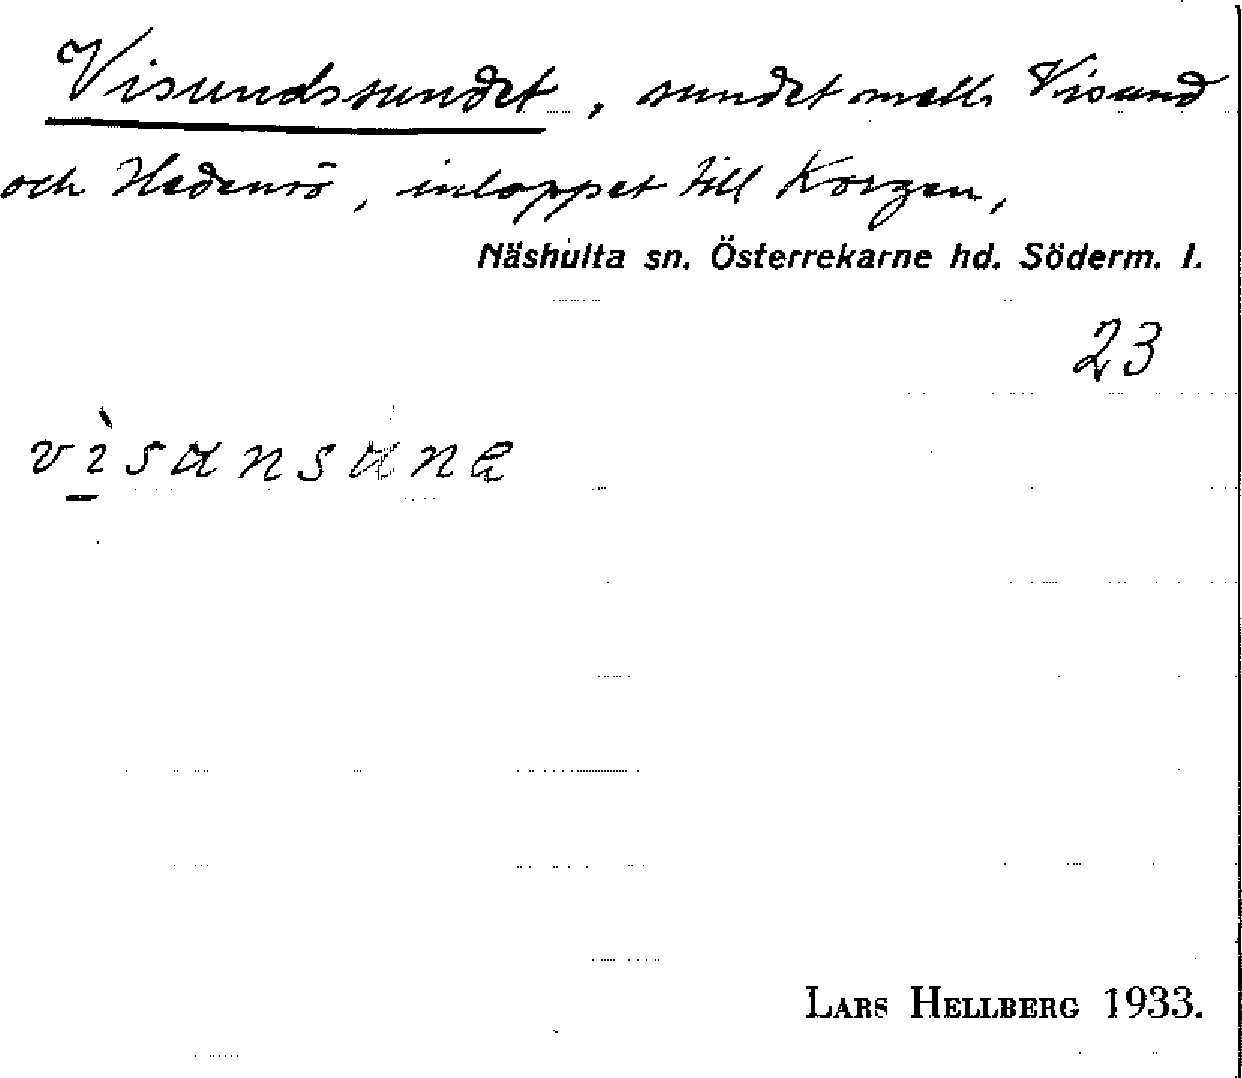 Visundssundet, sundet mell. Visund
och Hedensö, inloppet till Korgen,
Näshulta sn. Österrekarne hd. Söderm. l.
23
LARS HELLBERG 1933.